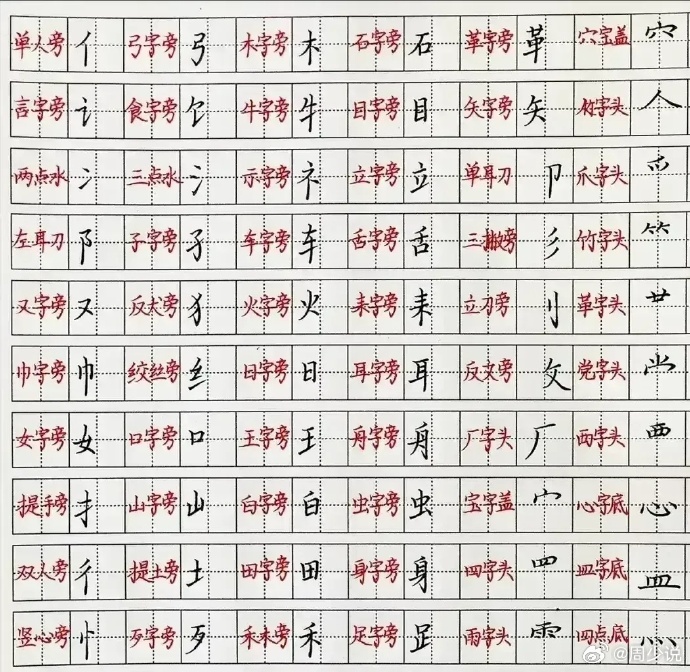 单人旁 亻 弓字旁 弓 木字旁 木 石字旁 石 革字旁 革 穴宝盖 穴
言字旁 讠 食字旁 饣 牛字旁 牛 目字旁 目 矢字旁 矢 竹字头 人
两点水 冫 三点水 氵 示字旁 礻 立字旁 立 单耳刀 卩 爪字头 爫
左耳刀 阝 子字旁 子 车字旁 车 舌字旁 舌 三撇旁 彡 竹字头 ⺮
又字旁 又 反犬旁 犭 火字旁 火 耒字旁 耒 立刀旁 刂 革字头 廿
巾字旁 巾 绞丝旁 纟 日字旁 日 耳字旁 耳 反文旁 攵 党字头 龸
女字旁 女 口字旁 口 王字旁 王 舟字旁 舟 厂字头 厂 西字头 覀
提手旁 扌 山字旁 山 白字旁 白 虫字旁 虫 宝字盖 宀 心字底 心
双人旁 彳 提土旁 土 田字旁 田 身字旁 身 四字头 罒 皿字底 皿
竖心旁 忄 歹字旁 歹 禾木旁 禾 足字旁 𧾷 雨字头 ⻗ 四点底 灬
@周少说